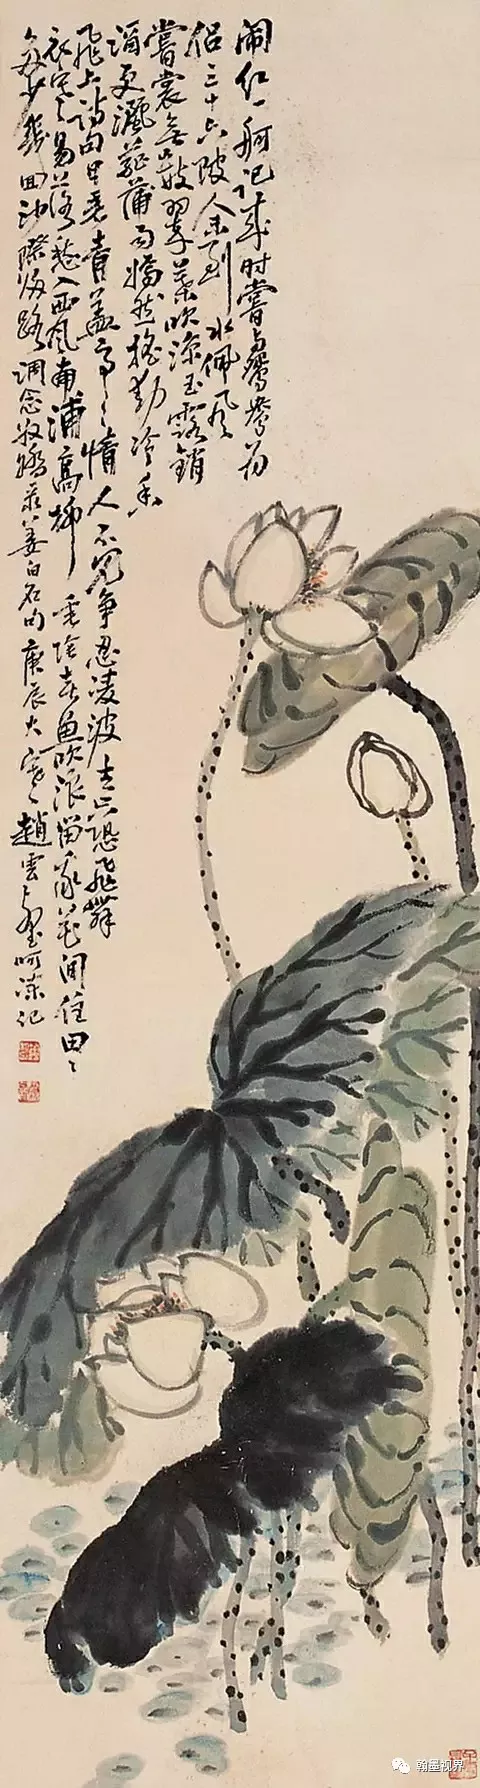 闹红一舸记来时嘗与鴛鴦为
侣三十六陂人未到水佩风
嘗裳無数翠葉吹凉玉露銷
酒更灑菰蒲雨嫣然摇動冷香
飛上詩句日暮青盖亭亭情人不見争忍凌波去只恐飛舞
衣寒易落愁入西風南浦高柳垂陰老魚吹浪留我花间住田田
多少幾回沙際归路調念奴嬌录姜白石句庚辰大寒趙雲壑呵凍记
翰墨视界